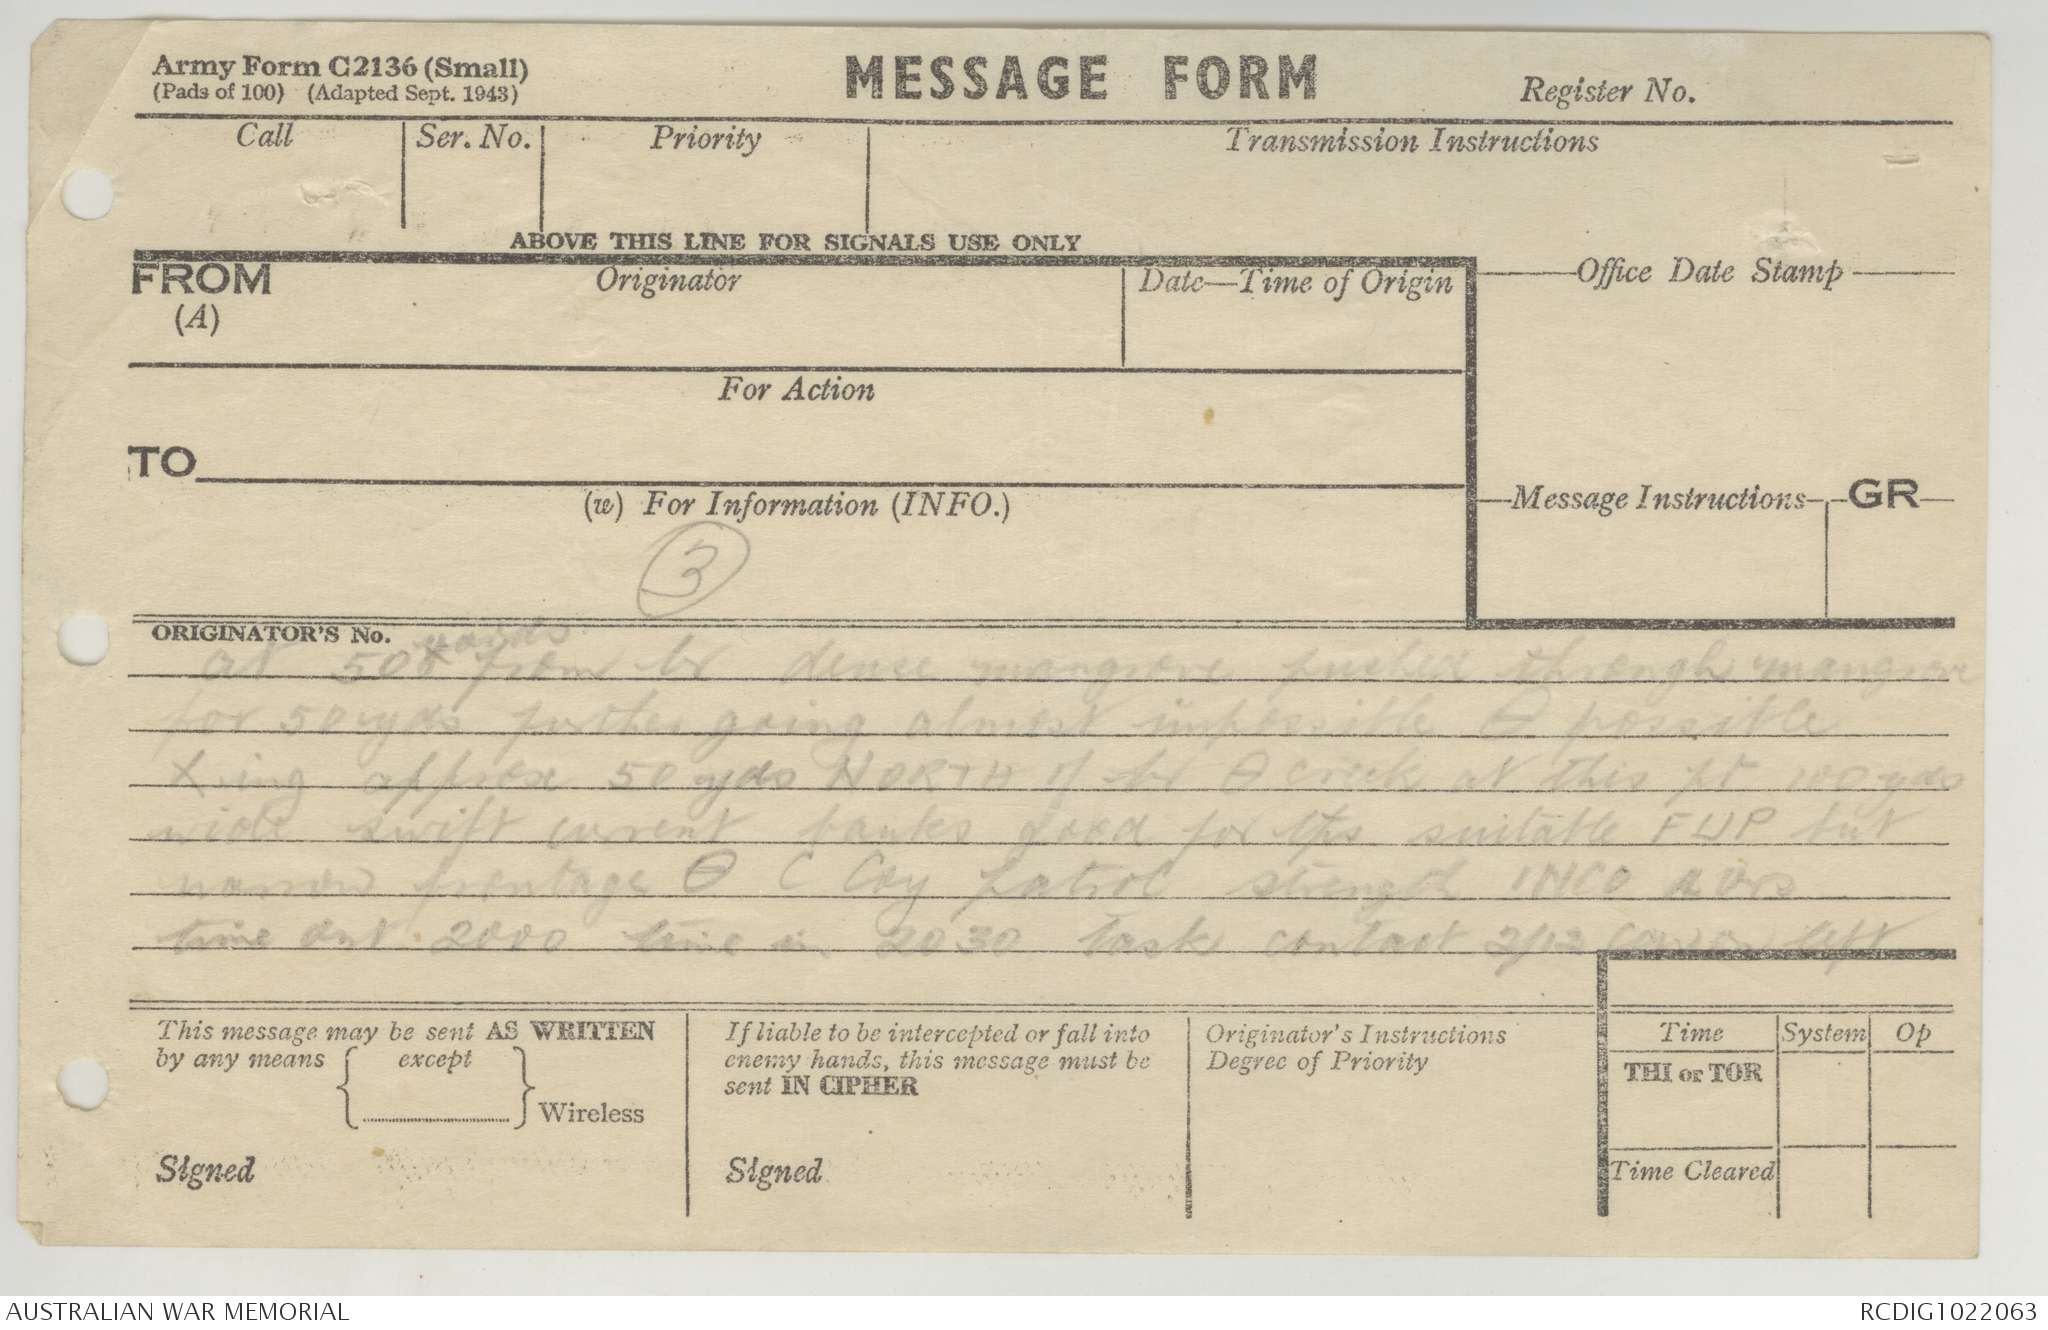 Army Form C2136 (Small)
(Pads of 100) (Adapted Sept. 1943)
MESSAGE FORM
Register No.
Call
Ser. No.
Priority
Transmission Instructions
ABOVE THIS LINE FOR SIGNALS USE ONLY
FROM
(A)
Originator
Date—Time of Origin
Office Date Stamp
For Action
TO
(w) For Information (INFO.)
Message Instructions
GR
3
ORIGINATOR'S No.
yards
at 500 from br dense mangrove pushed through mangrove
for 50 yds further going almost impossible possible
Xing approx 50 yds NORTH of br creek at this pt 100 yds
wide swift current banks good for tps suitable FUP but
narrow frontage C Coy patrol strength 1 NCO 2 ORs
time out 2000 time in 2030 task contact 2/12 left
This message may be sent AS WRITTEN
by any means
except
Wireless
Signed
If liable to be intercepted or fall into
enemy hands, this message must be
sent IN CIPHER
Signed
Originator's Instructions
Degree of Priority
Time
System
Op
THI or TOR
Time Cleared
AUSTRALIAN WAR MEMORIAL
RCDIG1022063